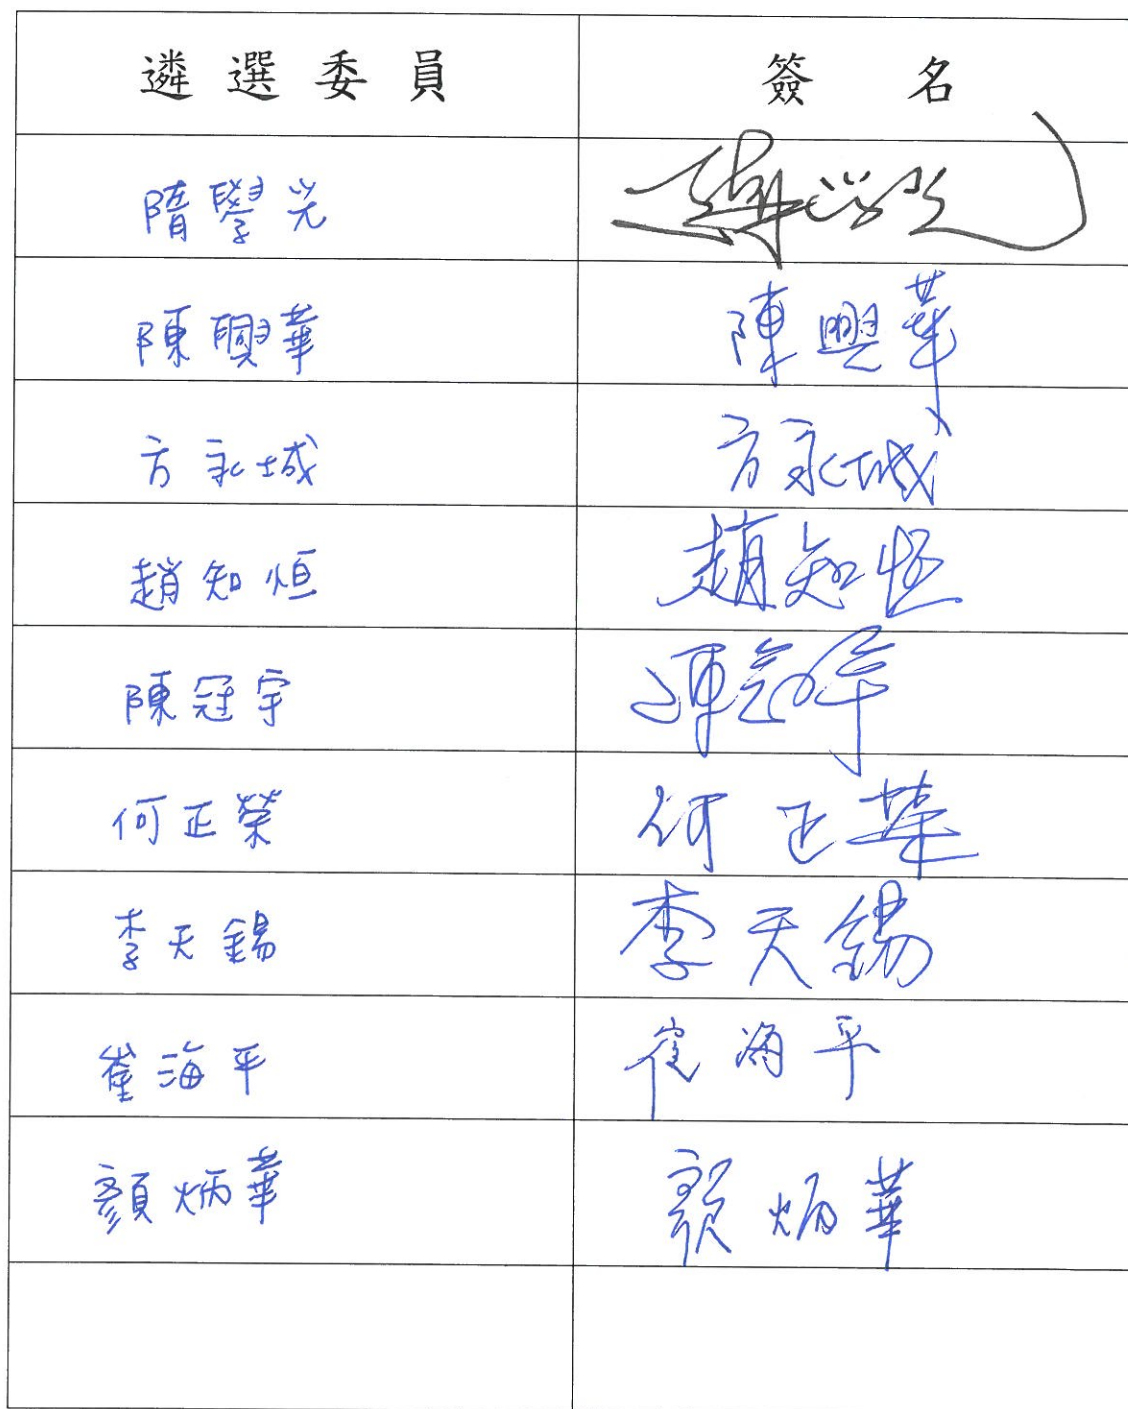 遴選委員 簽名
隋學光
陳興華 陳興華
方永城 方永城
趙知恒 趙知恒
陳冠宇 陳冠宇
何正榮 何正榮
李天錫 李天錫
崔海平 崔海平
顏炳華 顏炳華